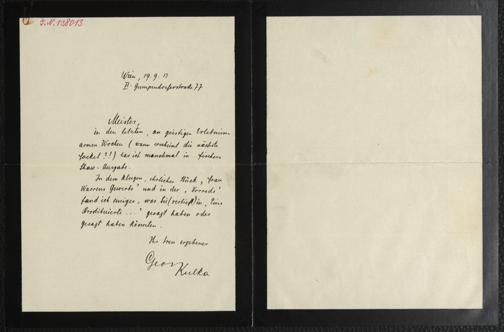 J.N. 138013
Wien, 19.9.17
VI. Gumpendorferstrasse 77
Meister,
in den letzten, an geistigen Erlebnissen
armen Wochen (wann erscheint die nächste
Fackel ?!!) las ich manchmal in Fischers
Shaw-Ausgabe.
In dem klugen, ehrlichen Stück, "Frau
Warrens Gewerbe" und in der "Vorrede"
fand ich einiges, was Sie in "Eine
Prostituierte ..." gesagt haben oder
gesagt haben könnten.
Ihr treu ergebener
Georg Kulka